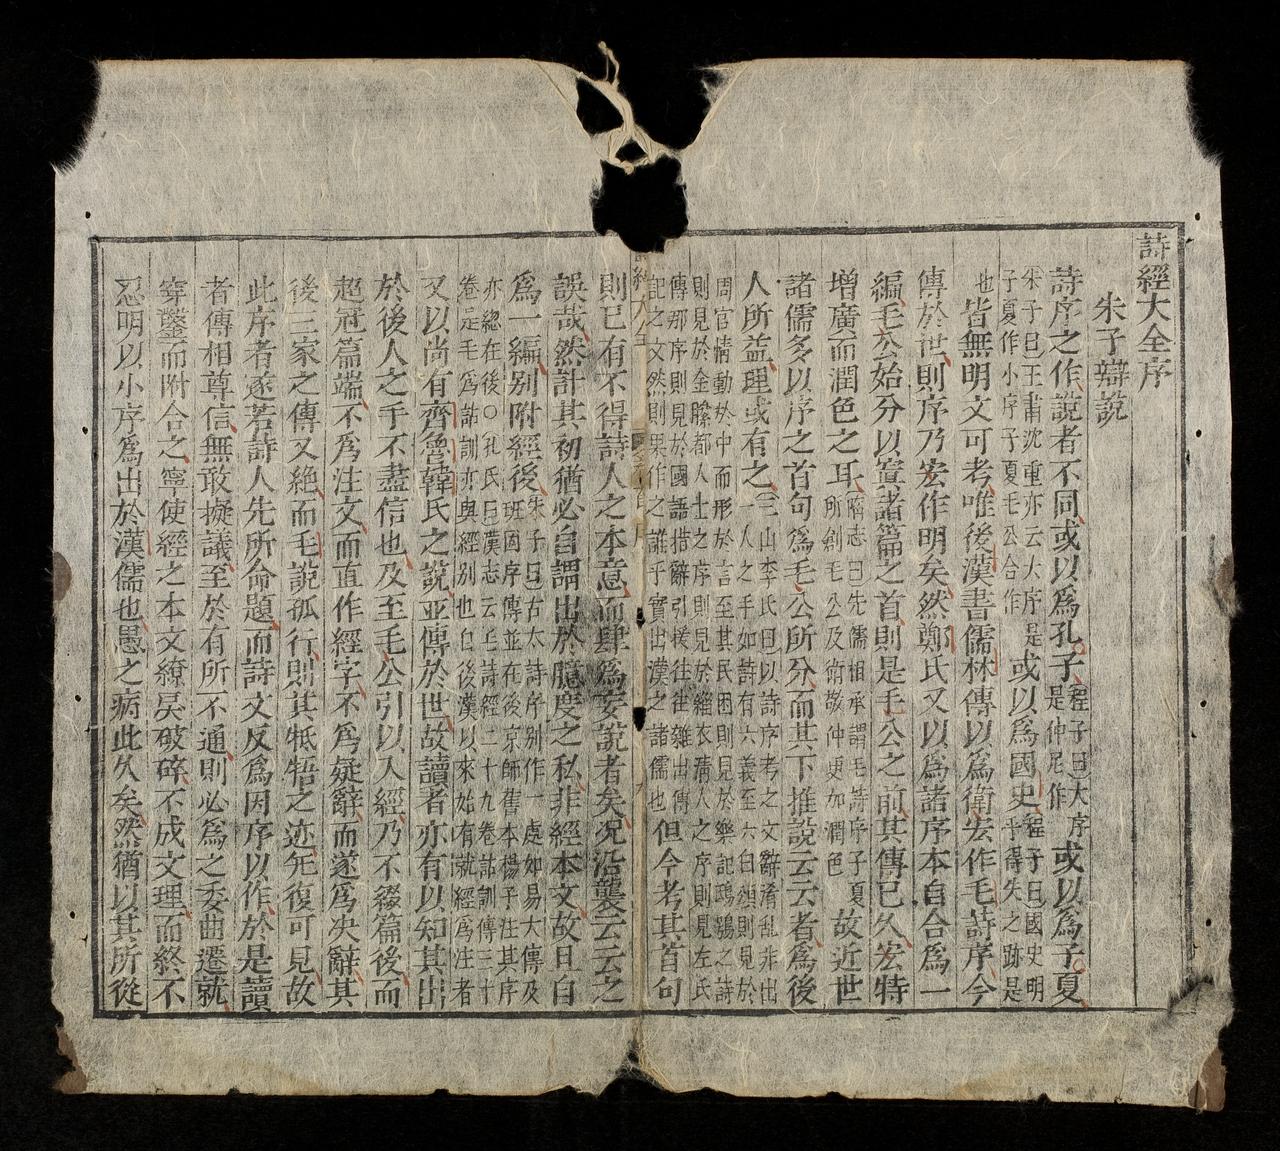 詩經大全序
朱子辯說
詩序之作說者不同或以爲孔子程子曰大序是仲尼作或以爲子夏
朱子曰王肅沈重亦云大序是子夏作小序子夏毛公合作或以爲國史程子曰國史明乎得失之跡是
也皆無明文可考唯後漢書儒林傳以爲衛宏作毛詩序今
傳於世則序乃宏作明矣然鄭氏又以爲諸序本自合爲一
編毛公始分以寘諸篇之首則是毛公之前其傳已久宏特
增廣而潤色之耳隋志曰先儒相承謂毛詩序子夏所創毛公及衛敬仲更加潤色故近世
諸儒多以序之首句爲毛公所分而其下推說云云者爲後
人所益理或有之三山李氏曰以詩序考之文辭淆亂非出一人之手如詩有六義至六曰頌則見於
周官情動於中而形於言至其民困則見於樂記鴟鴞之詩則見於金縢都人士之序則見於緇衣淸人之序則見左氏
傳那序則見於國語措辭引援往往雜出傳記之文然則果作之誰乎實出漢之諸儒也但今考其首句
詩經大全
則已有不得詩人之本意而肆爲妄說者矣况沿襲云云之
誤哉然計其初猶必自謂出於臆度之私非經本文故且自
爲一編別附經後朱子曰古太詩序別作一處如易大傳及班固序傳並在後京師舊本楊子注其序
亦總在後○孔氏曰漢志云毛詩經二十九卷詁訓傳三十卷是毛爲詁訓亦與經別也自後漢以來始有就經爲注者
又以尚有齊魯韓氏之說並傳於世故讀者亦有以知其出
於後人之手不盡信也及至毛公引以入經乃不綴篇後而
超冠篇端不爲注文而直作經字不爲疑辭而遂爲决辭其
後三家之傳又絶而毛說孤行則其牴牾之迹旡復可見故
此序者遂若詩人先所命題而詩文反爲因序以作於是讀
者傳相尊信無敢擬議至於有所不通則必爲之委曲遷就
穿鑿而附合之寧使經之本文繚戾破碎不成文理而終不
忍明以小序爲出於漢儒也愚之病此久矣然猶以其所從